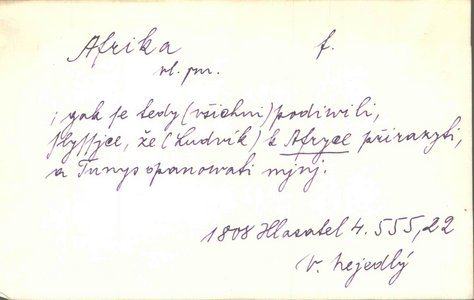 Afrika f.
vl. jm.
; gak se tedy (všichni) podiwili,
slyssjce, že (Ludvík) k Afryce přirazyti,
a Tunys opanowati mjnj.
1808 Hlasatel 4. 555, 22
V. Nejedlý